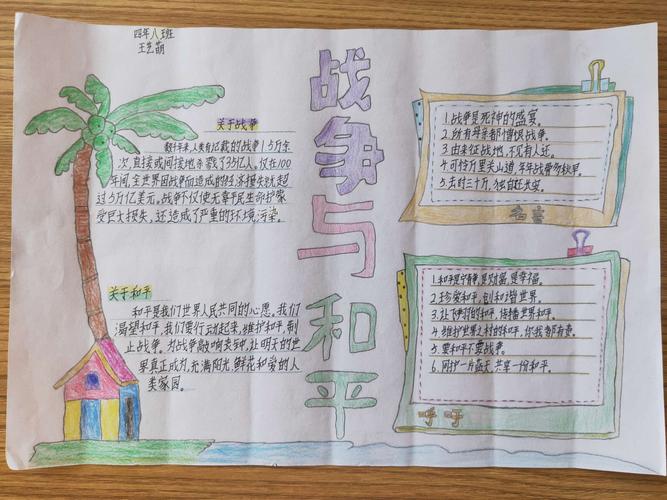 四年八班
王艺萌
战争与和平
关于战争
数千年来,人类有记载的战争1.5万余
次,直接或间接地杀戮了35亿人。仅在100
年间,全世界因战争而造成的经济损失就超
过5万亿美元。战争不仅使无辜平民生命
受巨大损失,还造成了严重的环境污染。
关于和平
和平是我们世界人民共同的心愿。我们
渴望和平,我们要行动起来,维护和平,制
止战争。为战争敲响丧钟,让明天的世
界真正成为充满阳光、鲜花和爱的人
类家园。
1.战争是死神的盛宴。
2.所有母亲都憎恨战争。
3.由来征战地,不见有人还。
4.可怜万里关山道,年年战骨多秋草。
5.去时三十万,独自还长安。
名言
1.和平是宁静,是财富,是幸福。
2.珍爱和平,创和谐世界。
3.让飞翔的和平,传播世界和平。
4.维护世界之村的和平,你我都有责。
5.要和平不要战争。
6.同护一片蓝天,共享一份和平。
呼吁